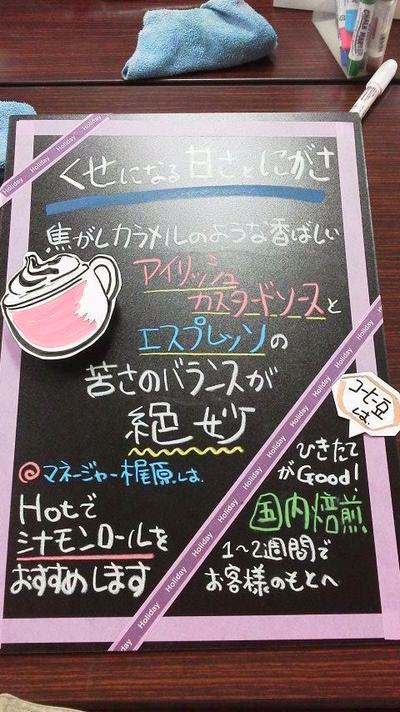 くせになる甘さとにがさ
焦がしカラメルのような香ばしい
アイリッシュ
カスタードソースと
エスプレッソの
苦さのバランスが
絶妙
@マネージャー梶原は
Hotで
シナモンロールを
おすすめします
コーヒー豆
は、
ひきたて
がGood!
国内焙煎
1~2週間で
お客様のもとへ
Holiday Holiday Holiday Holiday
Holiday Holiday Holiday Holiday Holiday Holiday Holiday Holiday Holiday